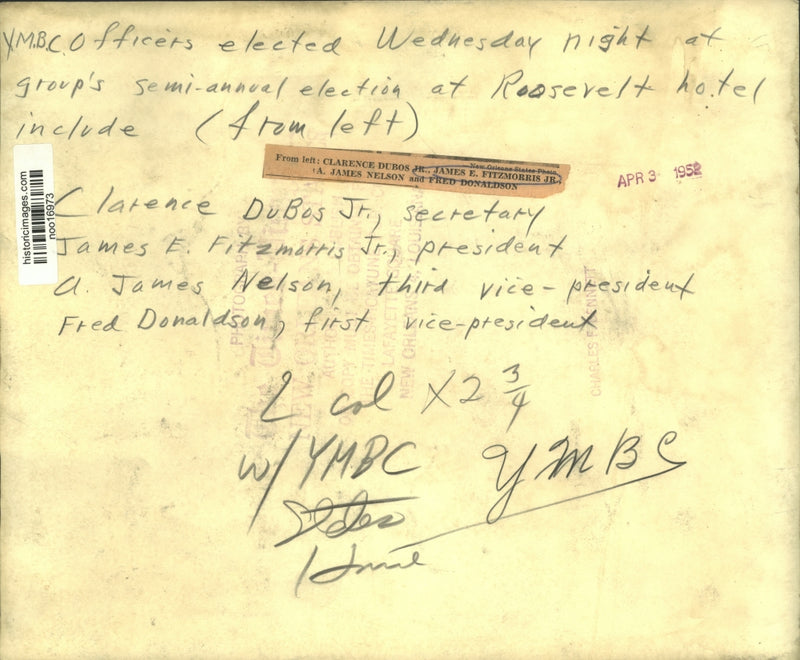 Y.M.B.C. Officers elected Wednesday night at
group's semi-annual election at Roosevelt hotel
include (from left)
New Orleans States Photo
From left: CLARENCE DUBOS JR., JAMES E. FITZMORRIS JR.,
A. JAMES NELSON and FRED DONALDSON
APR 3 1952
historicimages.com
noo16973
Clarence DuBos Jr., secretary
James E. Fitzmorris Jr., president
A. James Nelson, third vice-president
Fred Donaldson, first vice-president
2 col X 2 3/4
w/YMBC
YMBC
States